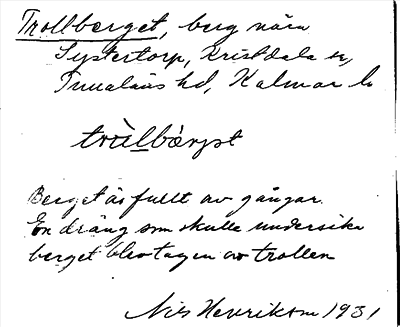 Trollberget, berg nära
Systertorp, Kristdala sn,
Tunaläns hd, Kalmar l.
trùlbǽrjət
Berget är fullt av gångar.
En dräng som skulle undersöka
berget blev tagen av trollen
Nils Henrikson 1931